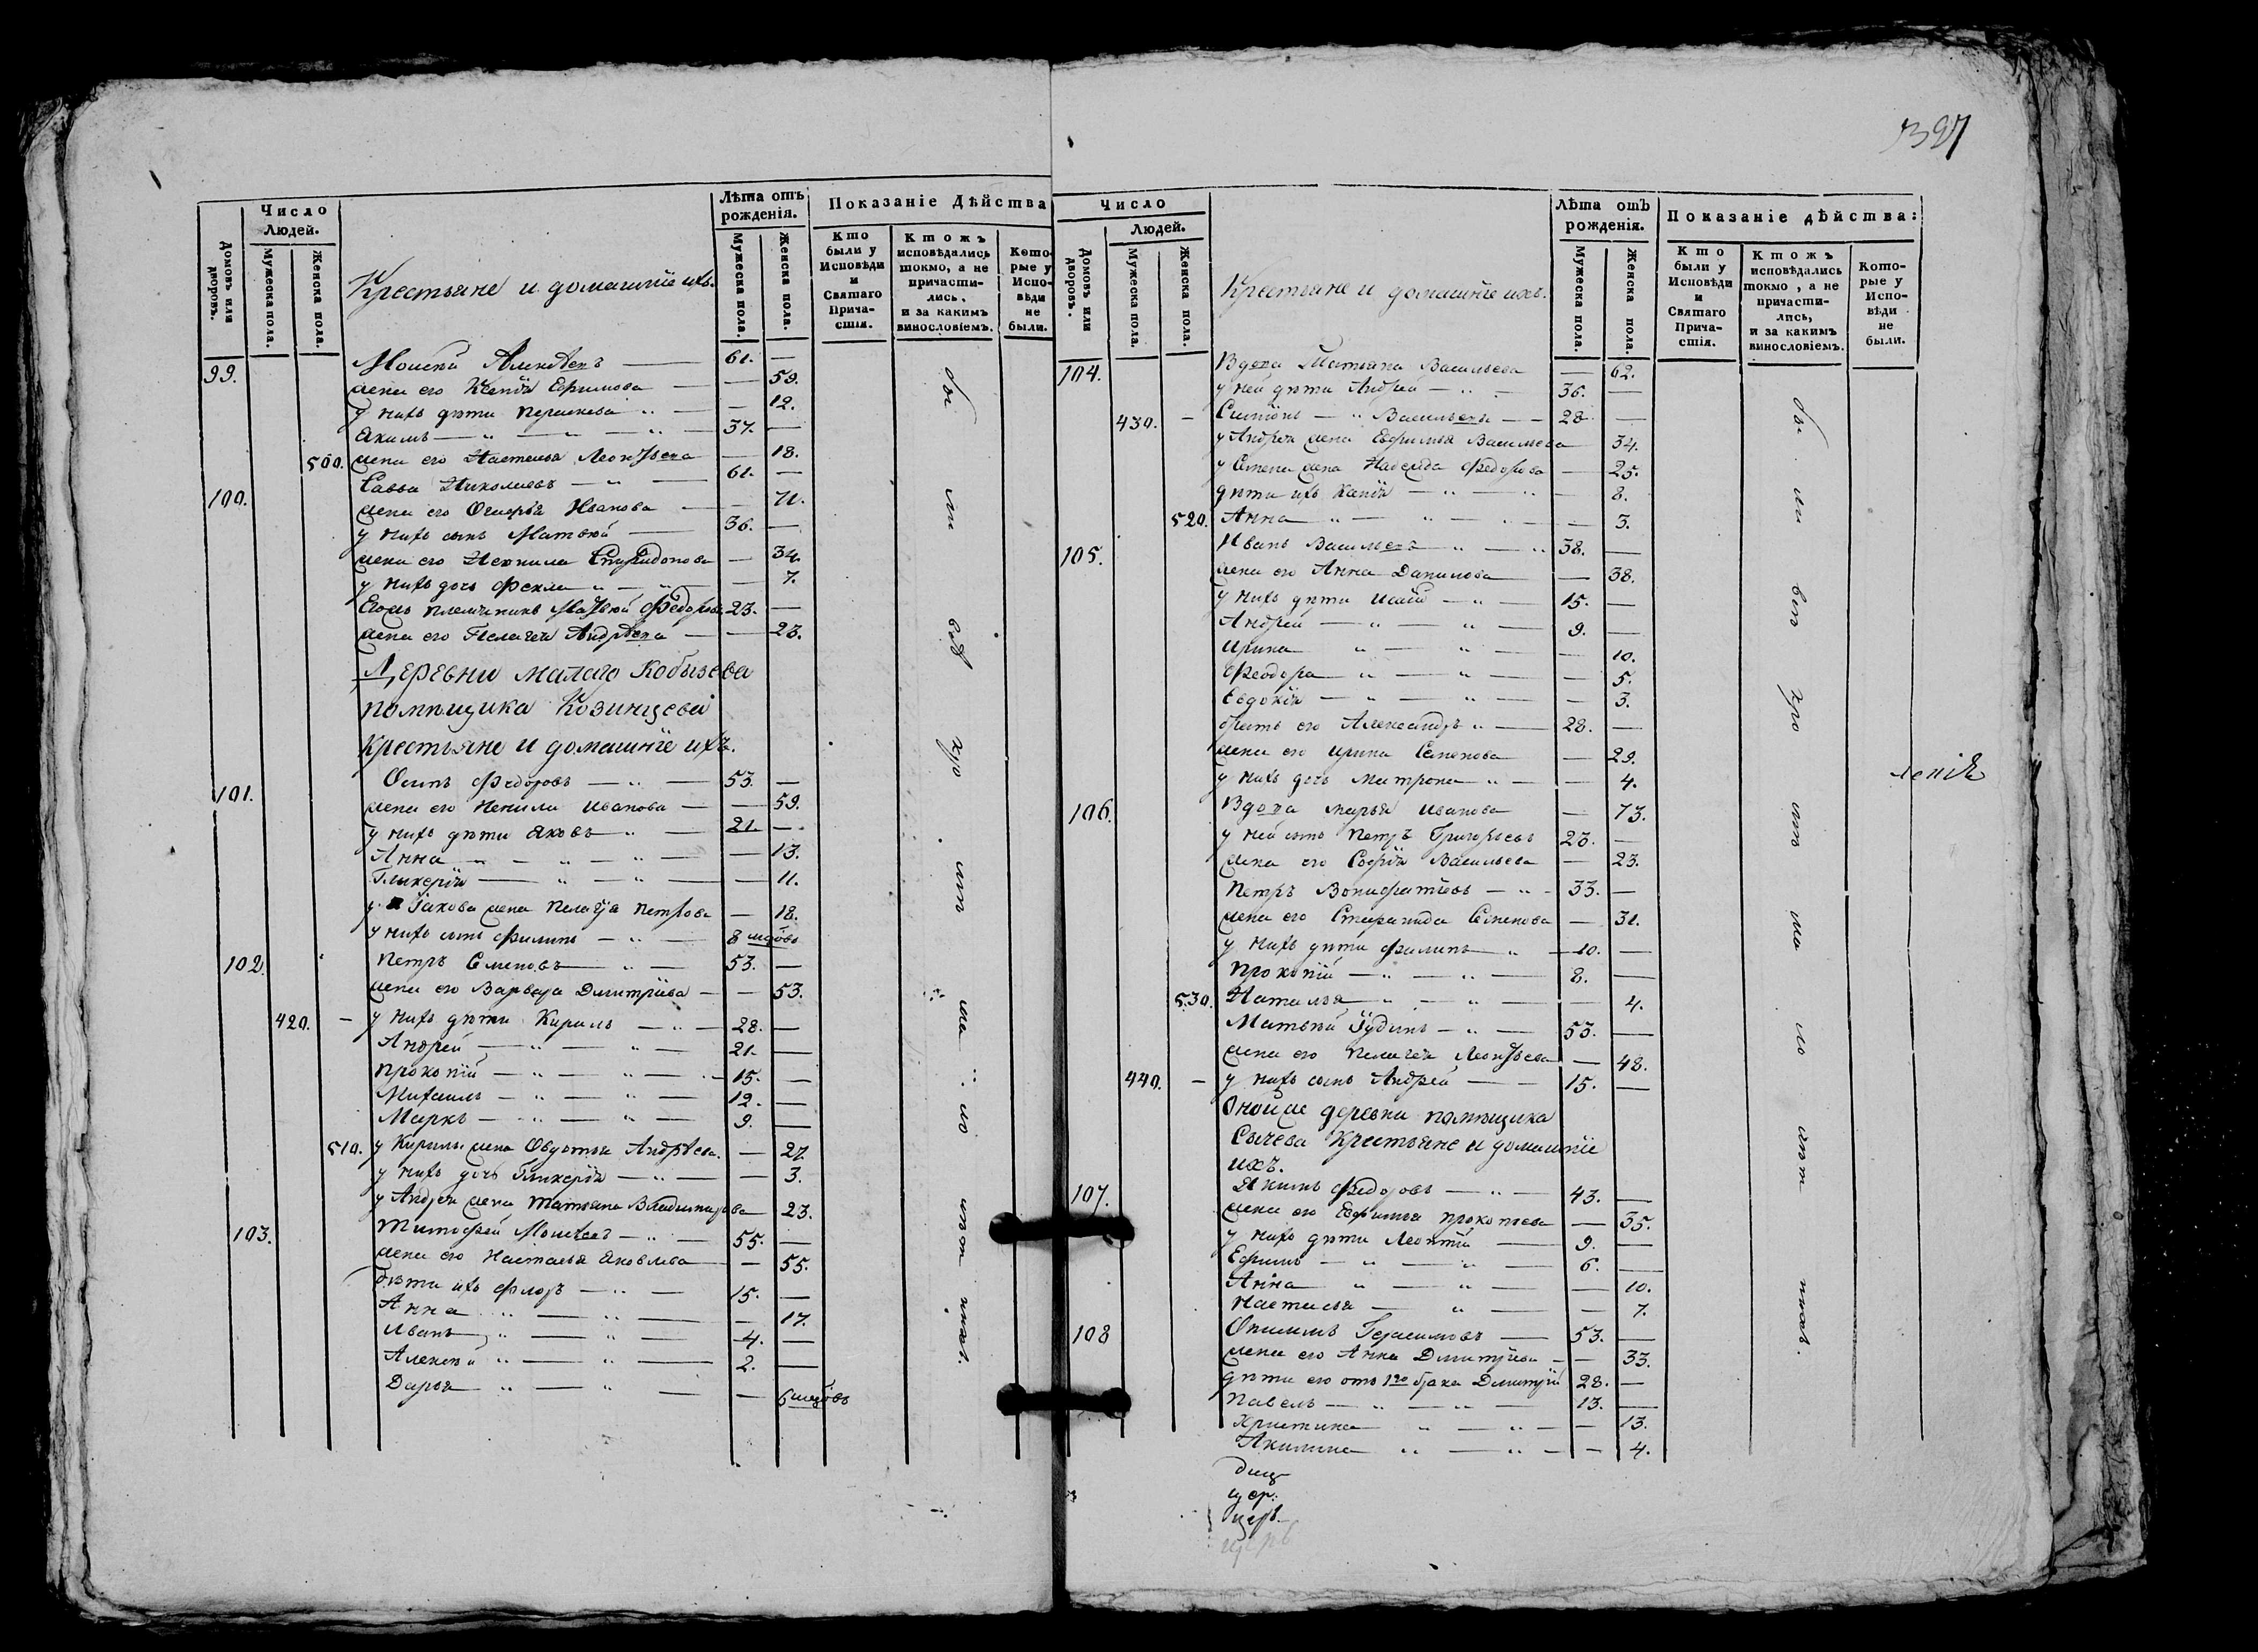 Число Людей.
Домовъ или дворовъ.
Мужеска пола.
Женска пола.
Крестьяне и домашнїе ихъ.
Лѣта отъ рожденія.
Мужеска пола.
Женска пола.
Показаніе Дѣйства
Кто были у Исповѣди и Святаго Прича-стія.
Ктожъ исповѣдались токмо, а не причасти-лись, и за какимъ винословіемъ.
Кото-рые у Испо-вѣди не были.
99. Моисей Алексѣевъ — 61. —
жена его Ксенїя Ефимова — — 59.
у нихъ дѣти Парасковья — — 12.
Якимъ — 37. —
500. жена его Настасья Леонтьева — 18.
100. Савва Николаевъ — 61. —
жена его Иванова — — 71.
у нихъ сынъ Матвѣй — 36. —
жена его Ненила Спиридонова — 34.
у нихъ дочь Фекла — — 7.
Егожъ племянникъ Матвѣй Федоровъ 23. —
жена его Пелагея Андрѣева — — 23.
Деревни малаго Кобызева
помѣщика Козинцева
крестьяне и домашнїе ихъ.
101. Осипъ Федоровъ — 53. —
жена его Ненила Иванова — — 59.
у нихъ дѣти Яковъ — 21. —
Анна — — 13.
Гликерїя — — 11.
у Іакова жена Пелагѣя Петрова — 18.
у нихъ сынъ Филипъ — 8 мцовъ
102. Петръ Семеновъ — 53. —
жена его Варвара Димитрїева — — 53.
420. — у нихъ дѣти Кирилъ — 28. —
Андрей — 21. —
Прокопїй — 15. —
Михаилъ — 12. —
Маркъ — 9. —
510. у Кирилы жена Овдотья Андрѣева. — 27.
у нихъ дочь Гликерїя — — 3.
у Андрея жена Татьяна Владимирова — 23.
103. Тимофей Моисѣевъ — 55. —
жена его Настасья Яковлева — — 55.
дѣти ихъ Флоръ — 15. —
Анна — — 17.
Иванъ — 4. —
Алексѣй — 2. —
Дарья — — 6 мцовъ
397
Число Людей.
Домовъ или дворовъ.
Мужеска пола.
Женска пола.
Крестьяне и домашнїе ихъ.
Лѣта отъ рожденія.
Мужеска пола.
Женска пола.
Показаніе дѣйства:
Кто были у Исповѣди и Святаго Прича-стія.
Ктожъ исповѣдались токмо, а не причасти-лись, и за какимъ винословіемъ.
Кото-рые у Испо-вѣди не были.
104. Вдова Татьяна Васильева — 62.
у ней дѣти Андрей — 36. —
430. — Симіонъ — Васильевы — 28 —
у Андрея жена Евфимья Васильева 34.
у Семена жена Надежда Федорова — 25.
дѣти ихъ — — 8.
520. Анна — — 3.
105. Иванъ Васильевъ — 38. —
жена его Анна Данилова — 38.
у нихъ дѣти Исаій — 15. —
Андрей — 9. —
Ирина — — 10.
Феодора — — 5.
Евдокїя — — 3.
братъ его Александръ — 28. —
жена его Ирина Семенова — 29.
у нихъ дочь Матрона — — 4.
106. Вдова Марья Иванова — 73.
у ней сынъ Петръ Григорьевъ 23. —
жена его Софїя Васильева — 23.
Петръ Вонифатїевъ — 33. —
жена его Степанида Семенова — 31.
у нихъ дѣти Филипъ — 10. —
Прокопїй — 8. —
530. Наталья — — 4.
Матвѣй Іудинъ — 53. —
жена его Пелагея Леонтьева — 48.
440. — у нихъ сынъ Андрей — 15. —
Онойже деревни помѣщика
Сычева крестьяне и домашнїе
ихъ.
107. Якимъ Федоровъ — 43. —
жена его Евфимья Прокопьева — 35.
у нихъ дѣти Леонтїй — 9. —
Ефимъ — 6. —
Анна — — 10.
Настасья — — 7.
108 Герасимовъ — 53. —
жена его Анна Димитрїева — — 33.
дѣти его отъ 1го брака Димитрїй 28. —
Павелъ — 13. —
Христина — — 13.
Акилина — — 4.